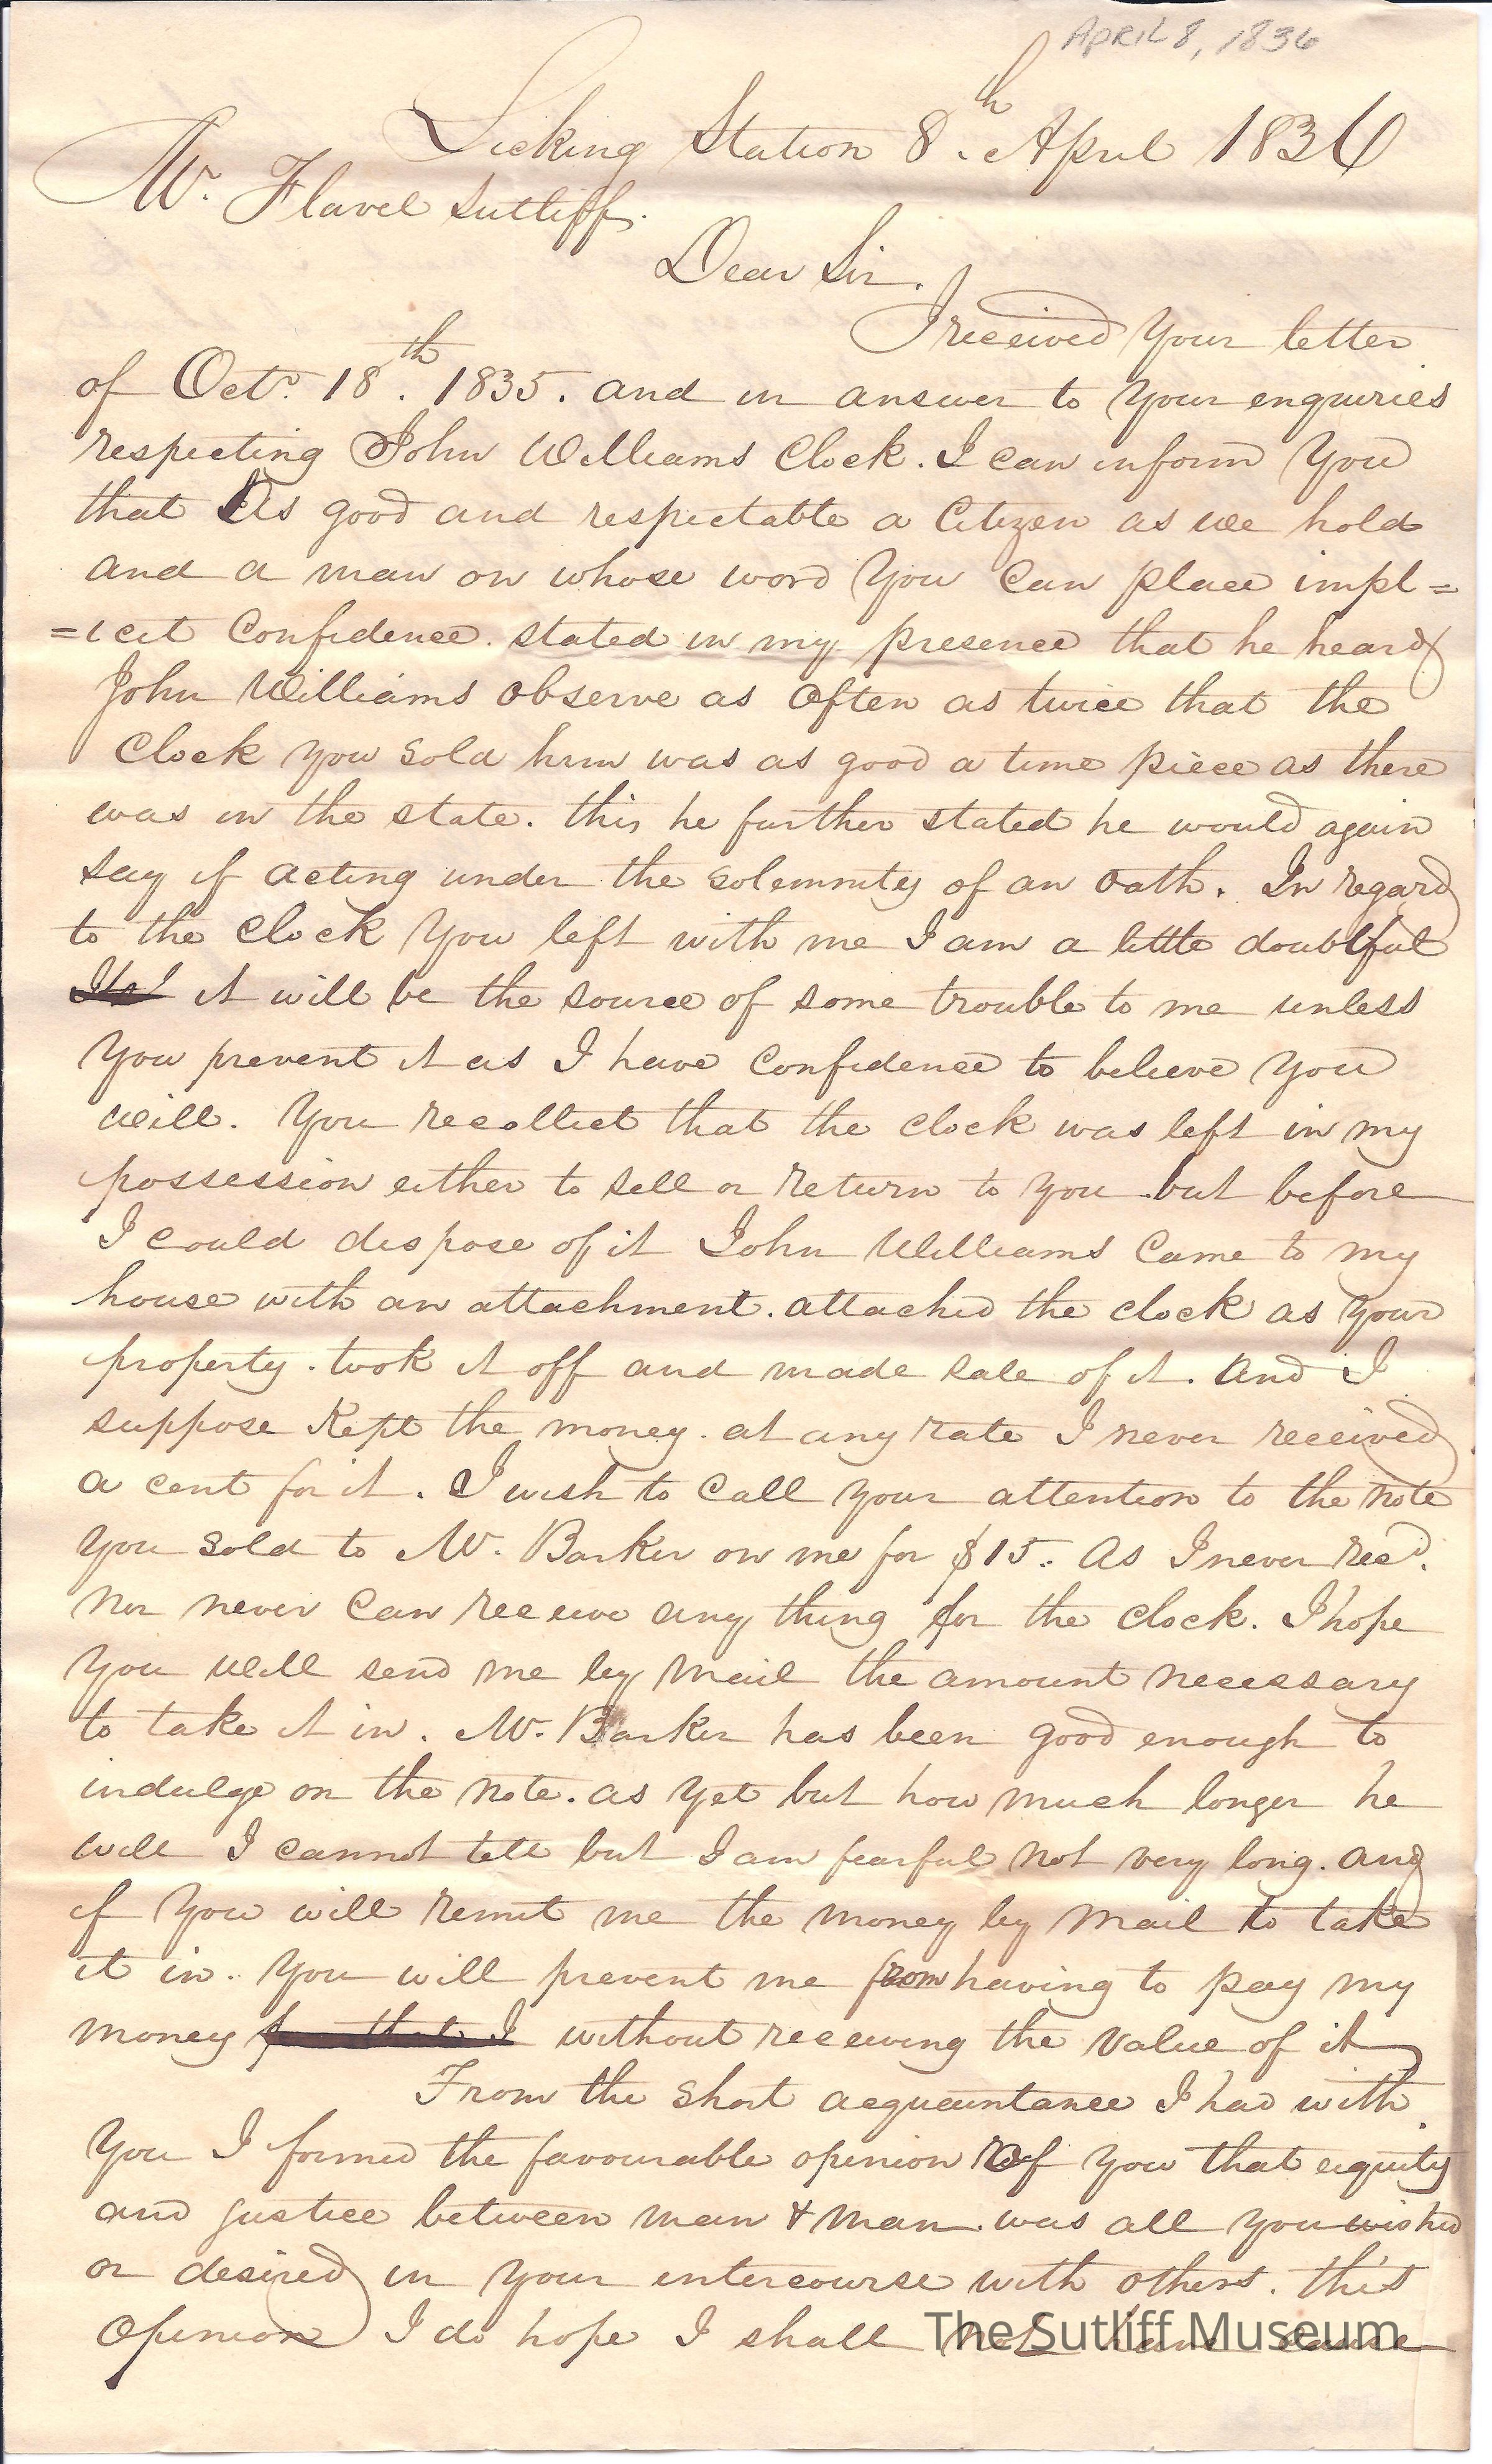 APRIL 8, 1836
Licking Station 8.th April 1836
Mr. Flavel Sutliff.
Dear Sir.
I received Your letter
of Octr. 18.th 1835. and in answer to Your enquiries
respecting John Williams Clock. I can inform You
that As good and respectable a Citizen as we hold
and a man on whose word You Can place impl=
=icit Confidence. stated in my presence that he heard
John Williams observe as often as twice that the
Clock you sold him was as good a time piece as there
was in the state. this he further stated he would again
say if acting under the solemnity of an oath. In regard
to the Clock You left with me I am a little doubtful
it will be the source of some trouble to me unless
You prevent it as I have Confidence to believe You
will. You recollect that the clock was left in my
possession either to sell or return to you but before
I could dispose of it John Williams Came to my
house with an attachment. attached the clock as your
property. took it off and made sale of it. And I
suppose Kept the money. at any rate I never received
a cent for it. I wish to Call your attention to the note
You sold to Mr. Barker on me for $15. As I never Recd.
nor never Can receive any thing for the clock. I hope
You will send me by Mail the amount necessary
to take it in. Mr. Barker has been good enough to
indulge on the note. as yet but how much longer he
will I cannot tell but I am fearful not very long. and
if You will remit me the money by Mail to take
it in. You will prevent me from having to pay my
money for that I without receiving the value of it
From the short acquaintance I had with
You I formed the favourable opinion of You that equity
and justice between man & man. was all you wished
or desired in Your intercourse with others. this
Opinion I do hope I shall not have cause
The Sutliff Museum